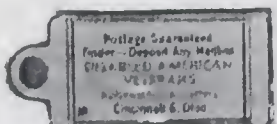 Postage Guaranteed
Finder - Deposit Any Mailbox
DISABLED AMERICAN
VETERANS
Cincinnati 6, Ohio